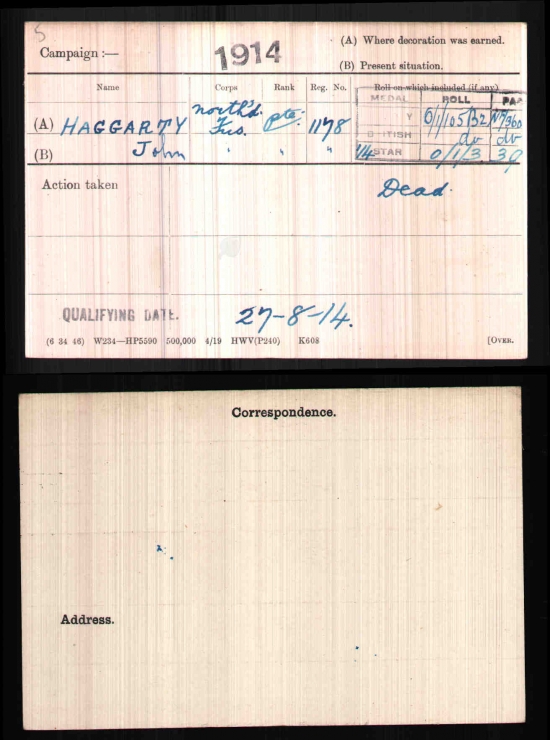 5
Campaign :— 1914 (A) Where decoration was earned.
(B) Present situation.
Name Corps Rank Reg. No. Roll on which included (if any)
MEDAL ROLL PA
(A) HAGGARTY North'd. Fus. Pte. 1178 Y O/1/105/32
(B) John " " " B ITISH do do
14 STAR O/1/3 39
Action taken Dead.
QUALIFYING DATE. 27-8-14.
(6 34 46) W234—HP5590 500,000 4/19 HWV(P240) K608 [OVER.
Correspondence.
Address.